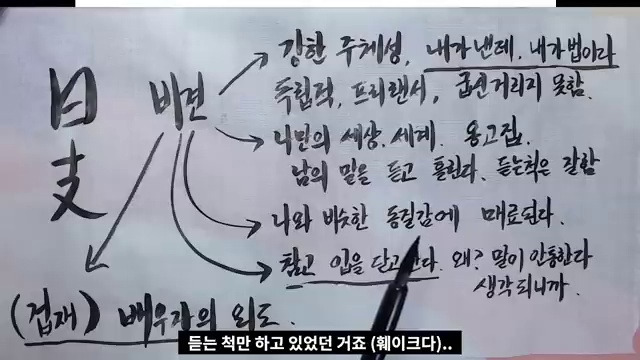 日支
비견
강한 주체성, 내가 낸데, 내가 법이다
독립적, 프리랜서, 굽신거리지 못함.
나만의 세상, 세계. 옹고집.
남의 말을 듣고 흘린다. 듣는척은 잘함
나와 비슷한 동질감에 매료된다.
참고 입을 닫고 산다. 왜? 말이 안통한다
생각되니까.
(겁재) 배우자의 외도.
듣는 척만 하고 있었던 거죠 (훼이크다)..